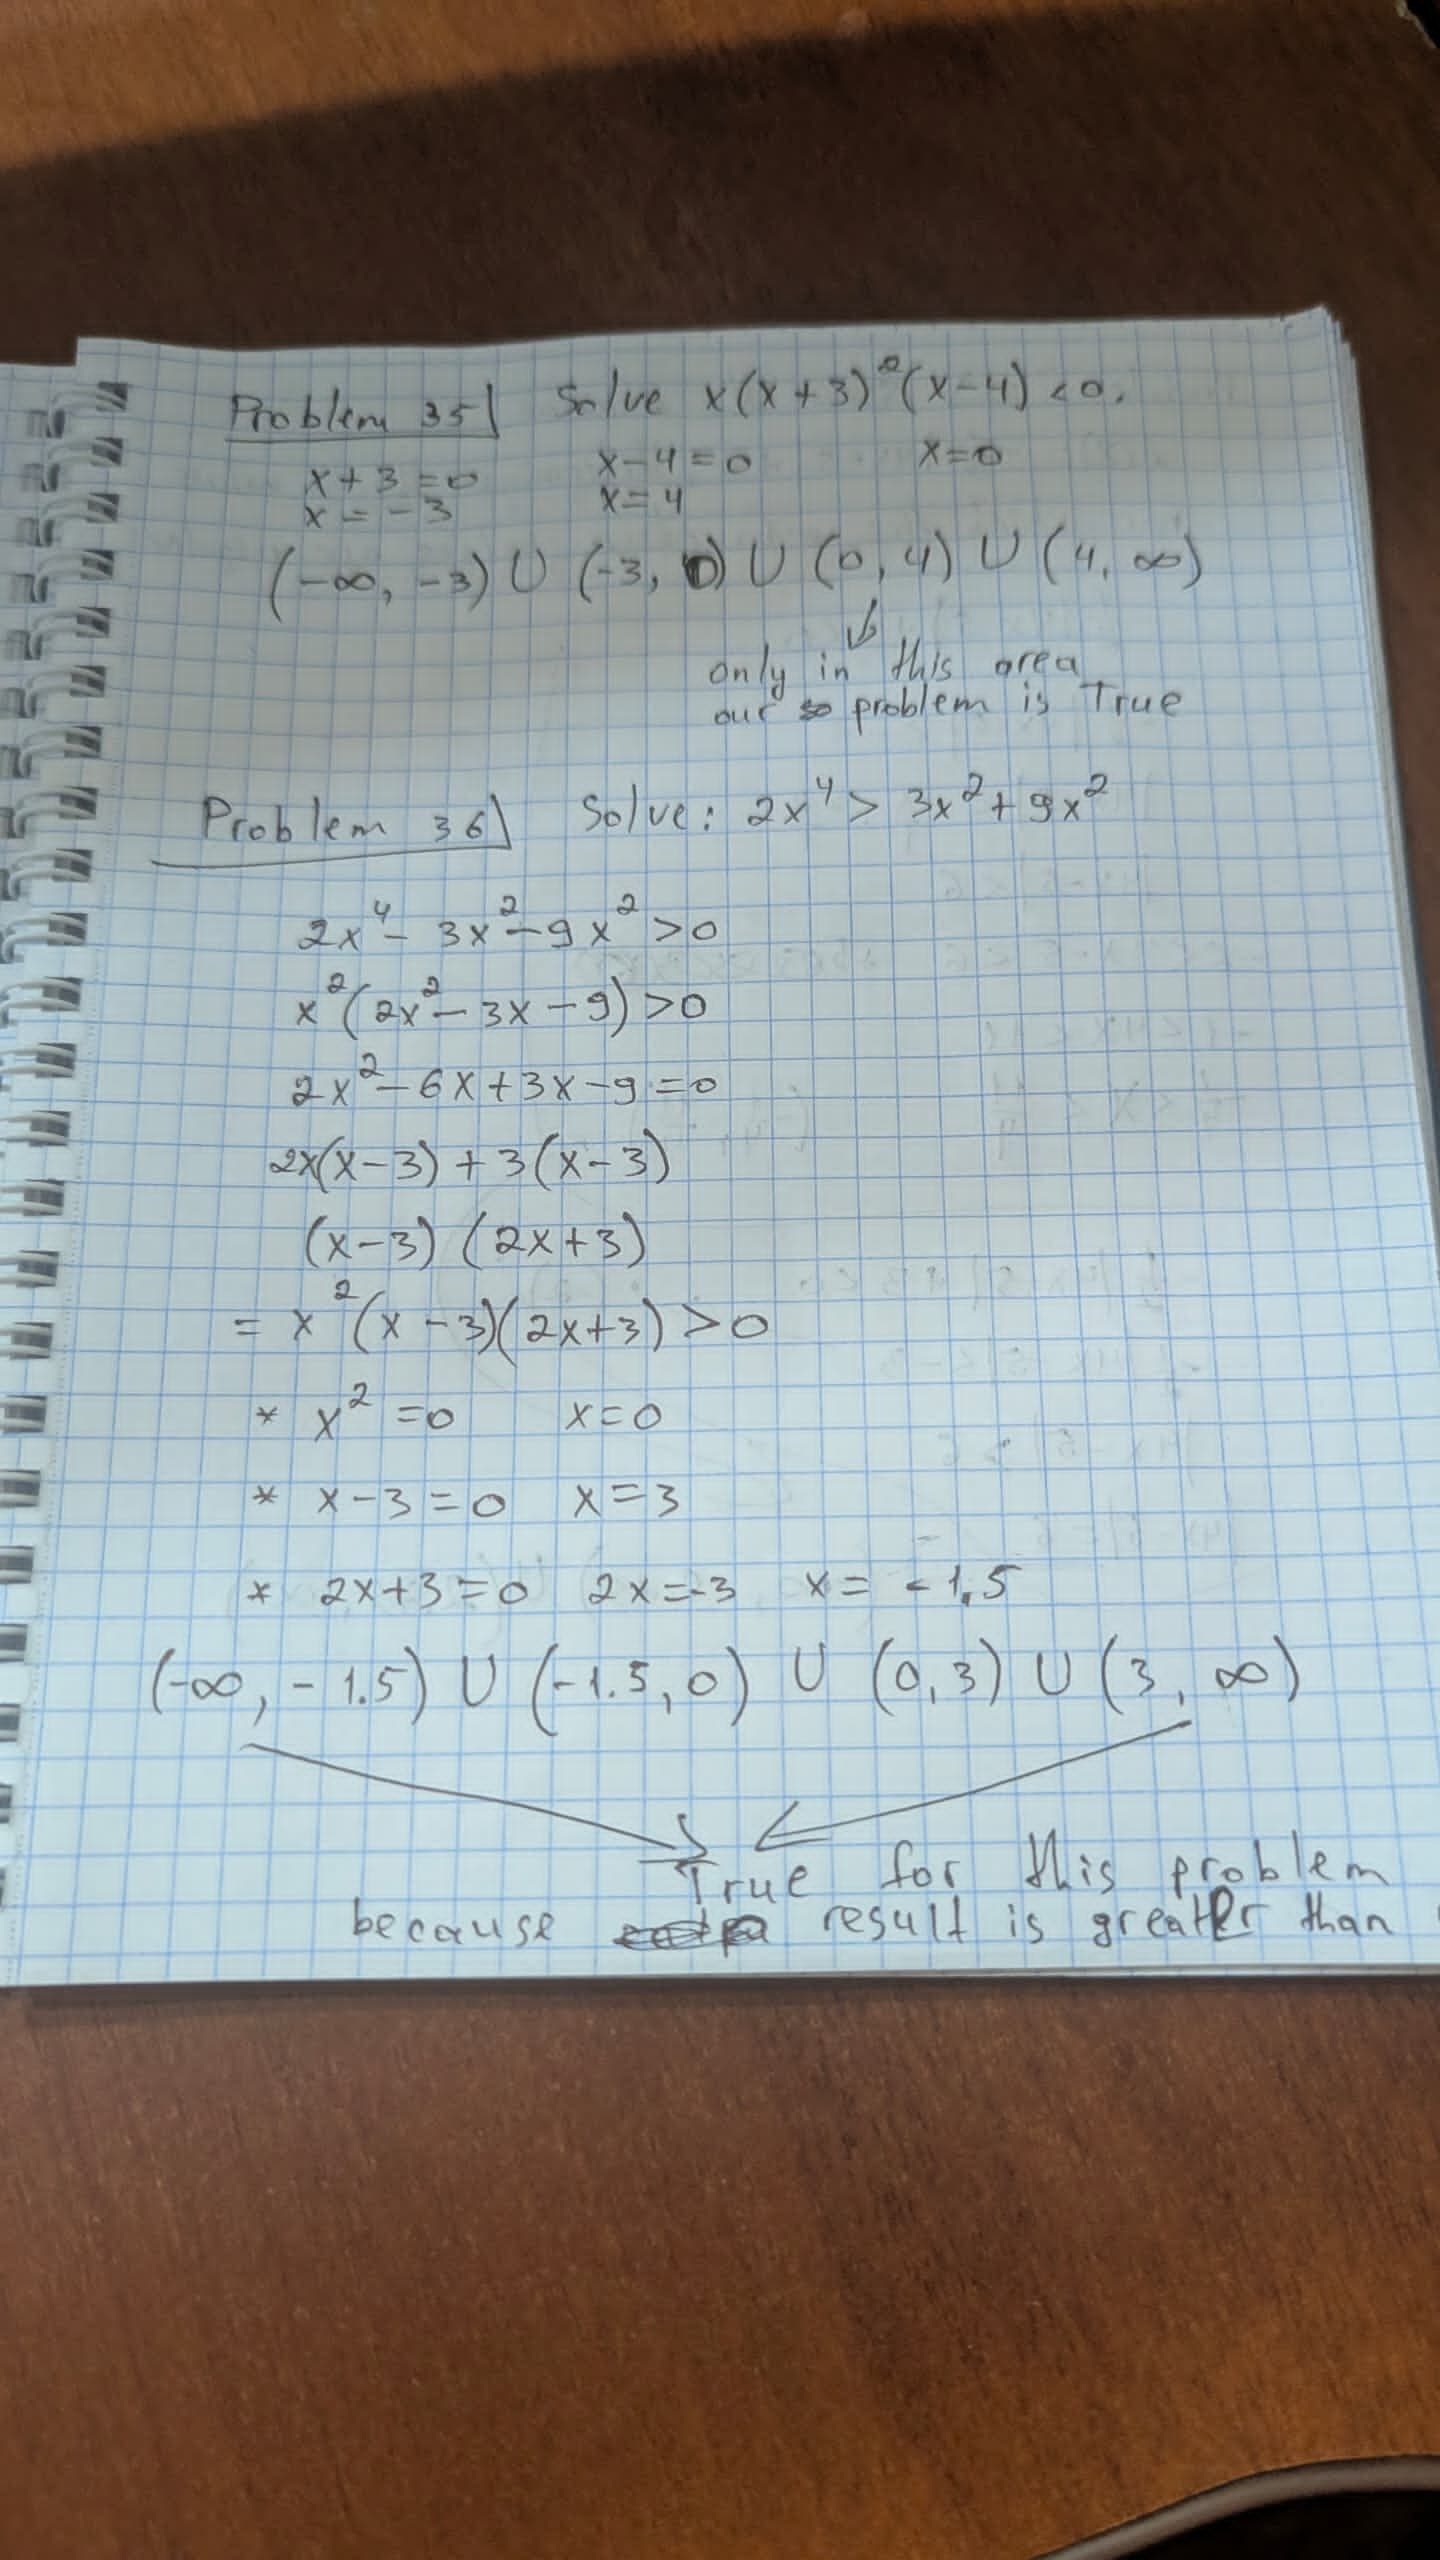 Problem 35 Solve x(x+3)²(x-4)<0.
x+3=0 x-4=0 x=0
x=-3 x=4
(-∞, -3) ∪ (-3, 0) ∪ (0, 4) ∪ (4, ∞)
only in this area
our problem is True
Problem 36 Solve: 2x⁴ > 3x²+9x²
2x⁴- 3x²-9x²>0
x²(2x²-3x-9)>0
2x²-6x+3x-9=0
2x(x-3)+3(x-3)
(x-3) (2x+3)
= x²(x-3)(2x+3)>0
* x²=0 x=0
* x-3=0 x=3
* 2x+3=0 2x=-3 x= -1.5
(-∞, -1.5) ∪ (-1.5, 0) ∪ (0, 3) ∪ (3, ∞)
True for this problem
because result is greater than